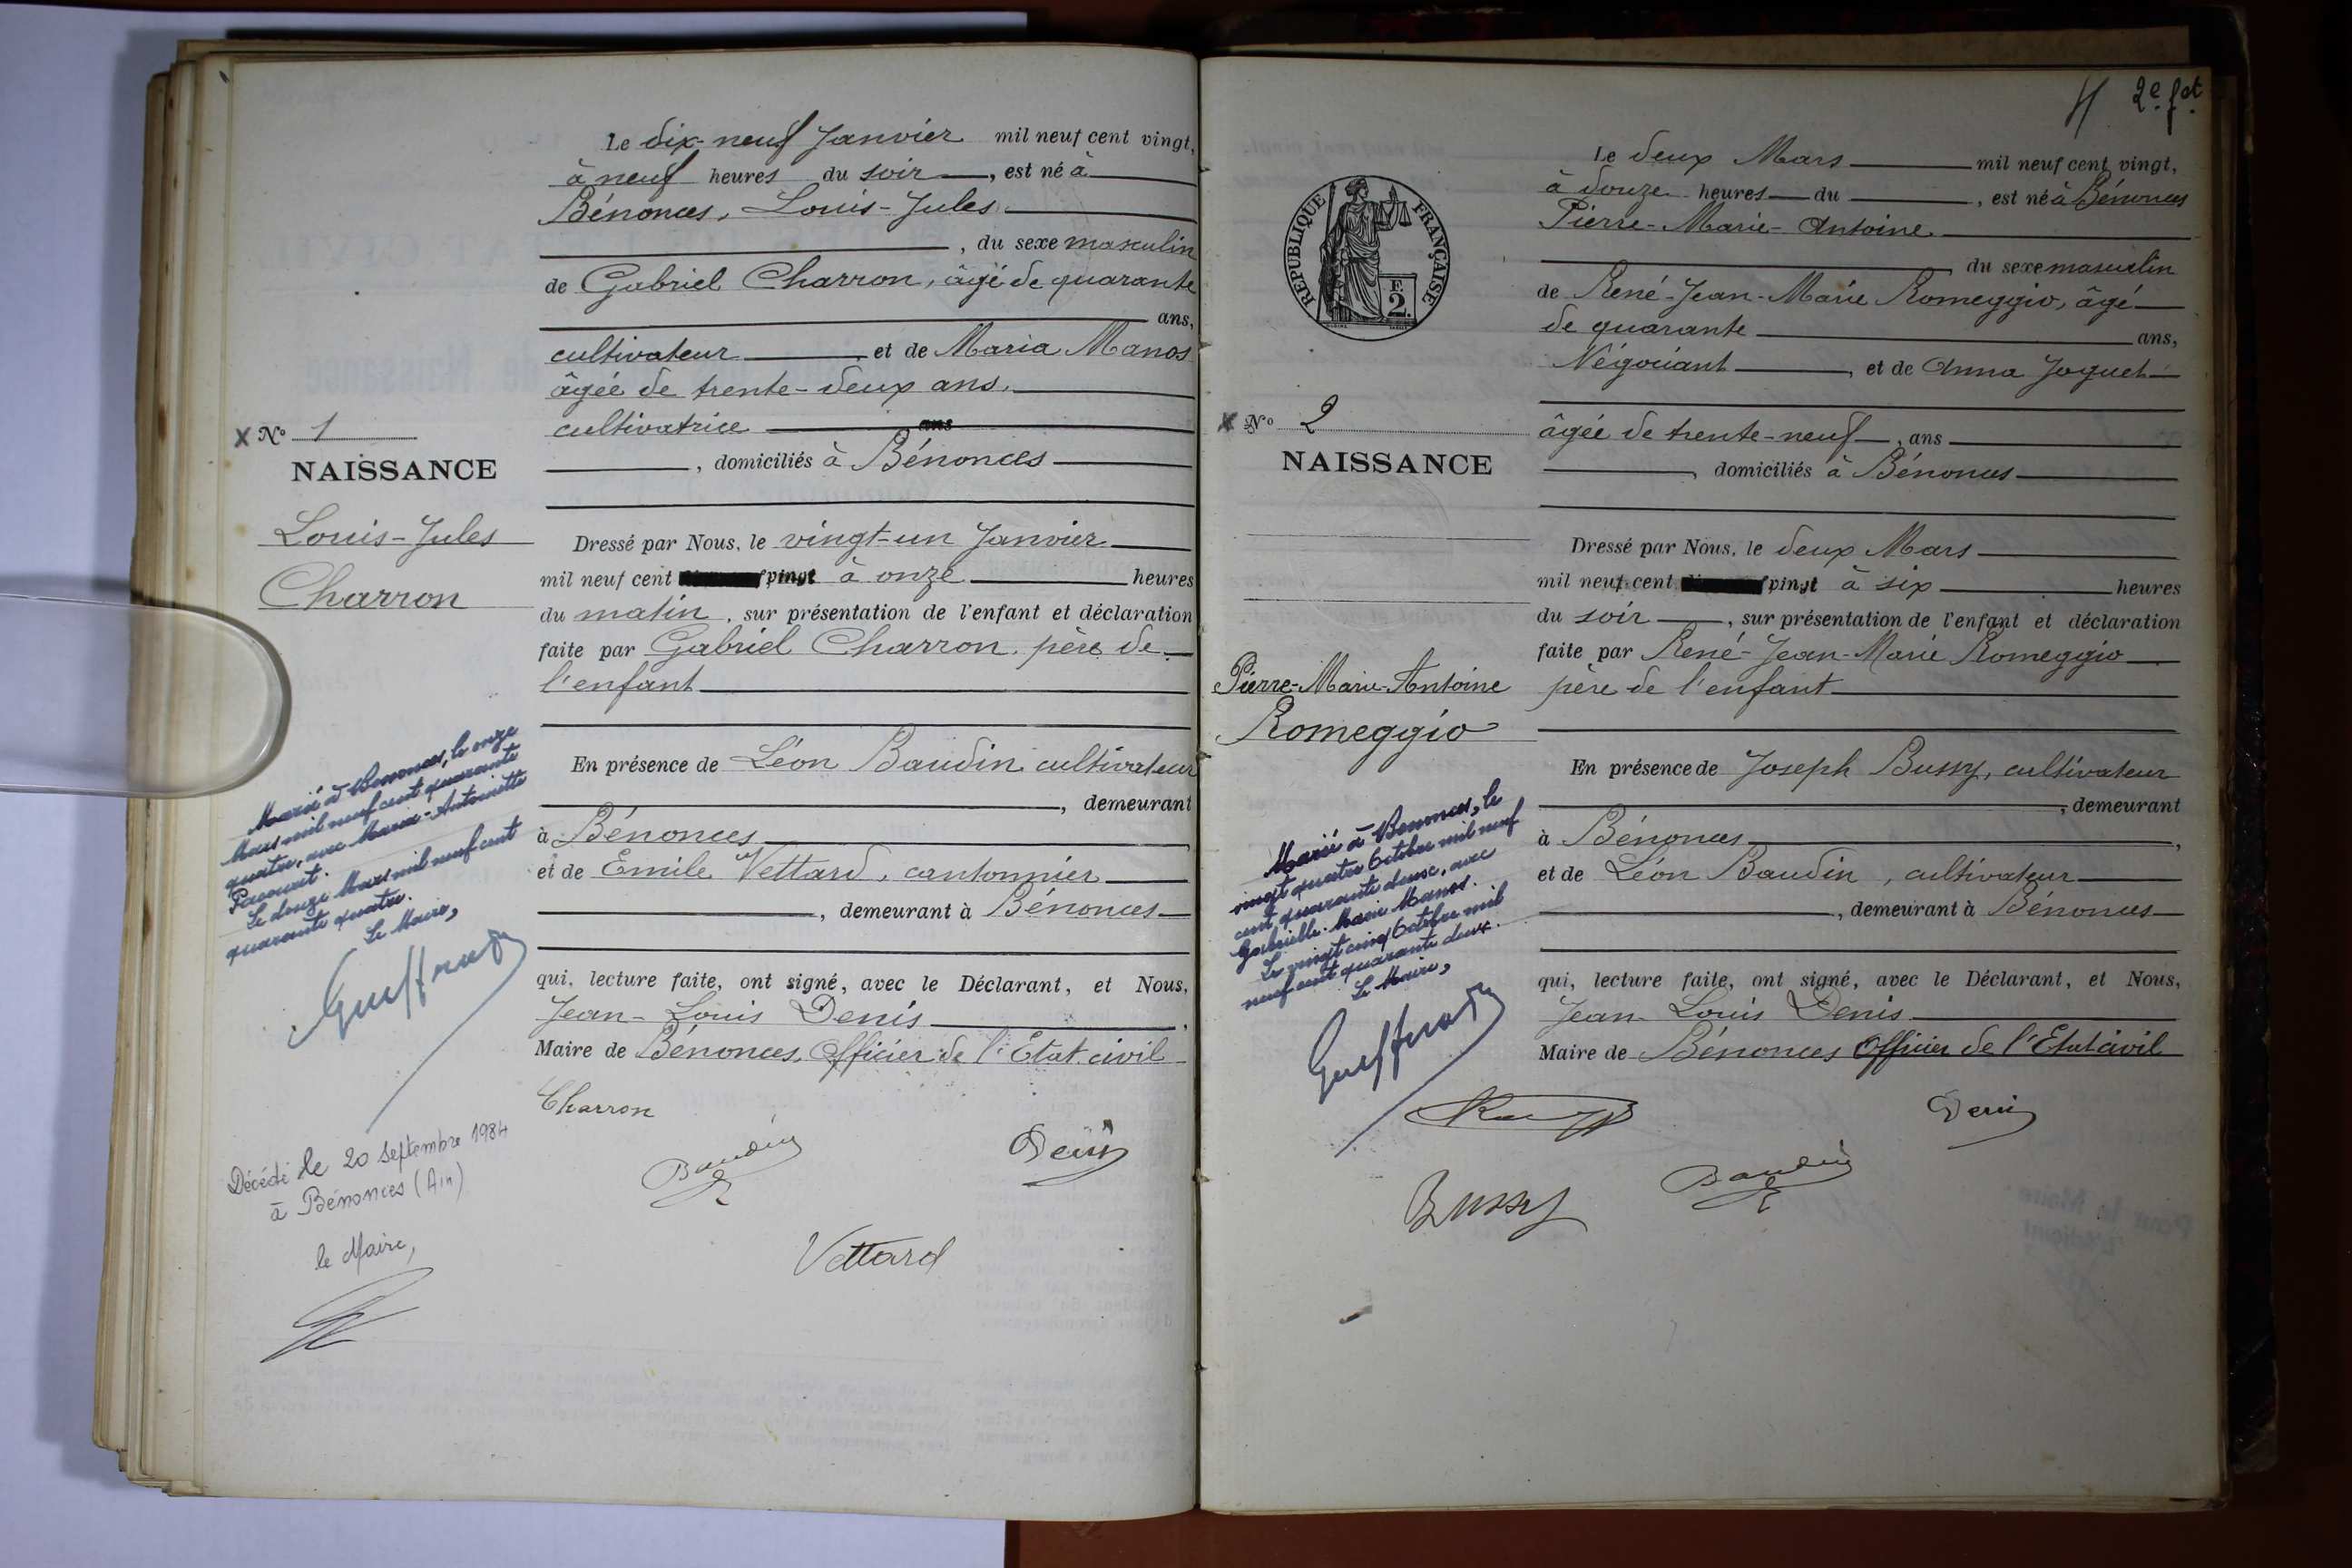 Le dix-neuf Janvier mil neuf cent vingt,
à neuf heures du soir, est né à
Bénonces, Louis-Jules
, du sexe masculin
de Gabriel Charron, âgé de quarante
ans,
cultivateur et de Maria Manos
âgée de trente-deux ans,
cultivatrice ans
, domiciliés à Bénonces
X No 1
NAISSANCE
Louis-Jules
Charron
Dressé par Nous, le vingt-un Janvier
mil neuf cent vingt à onze heures
du matin, sur présentation de l'enfant et déclaration
faite par Gabriel Charron, père de
l'enfant
En présence de Léon Baudin cultivateur
, demeurant
à Bénonces
et de Emile Vettard, cantonnier
, demeurant à Bénonces
qui, lecture faite, ont signé, avec le Déclarant, et Nous,
Jean-Louis Denis,
Maire de Bénonces, Officier de l'Etat civil
Charron
Baudin
Denis
Vettard
Marié à Benonces, le onze
Mars mil neuf cent quarante
quatre, avec Maria-Antoinette
Pacourt.
Le douze Mars mil neuf cent
quarante quatre.
Le Maire,
Décédé le 20 septembre 1984
à Bénonces (Ain)
le Maire,
2e fet
Le deux Mars mil neuf cent vingt,
à douze heures du , est né à Bénonces
Pierre-Marie-Antoine
du sexe masculin
de René-Jean-Marie Romeggio, âgé
de quarante ans,
Négociant, et de Anna Joguet
âgée de trente-neuf, ans
, domiciliés à Bénonces
RÉPUBLIQUE FRANÇAISE
F.
2.
X No 2
NAISSANCE
Pierre-Marie-Antoine
Romeggio
Dressé par Nous, le deux Mars
mil neuf cent vingt à six heures
du soir, sur présentation de l'enfant et déclaration
faite par René-Jean-Marie Romeggio
père de l'enfant
En présence de Joseph Bussy, cultivateur
, demeurant
à Bénonces,
et de Léon Baudin, cultivateur
, demeurant à Bénonces
qui, lecture faite, ont signé, avec le Déclarant, et Nous,
Jean-Louis Denis
Maire de Bénonces Officier de l'Etat civil
Denis
Bussy
Baudin
Marié à Benonces, le
vingt quatre Octobre mil neuf
cent quarante deux, avec
Gabrielle-Marie Manos.
Le vingt cinq Octobre mil
neuf cent quarante deux.
Le Maire,